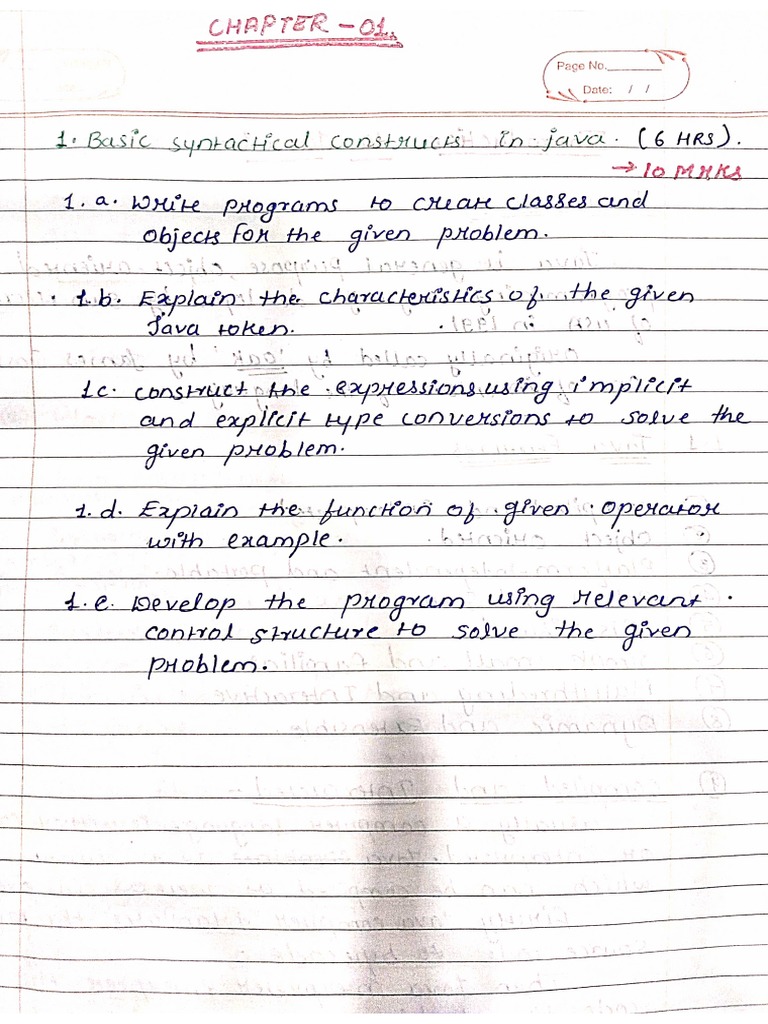 CHAPTER - 01.
Page No.
Date: / /
1. Basic syntactical constructs in java. (6 HRS).
→ 10 MRKS
1. a. Write programs to create classes and
objects for the given problem.
1.b. Explain the characteristics of the given
Java token.
1c. construct the expressions using implicit
and explicit type conversions to solve the
given problem.
1. d. Explain the function of given operator
with example.
1. e. Develop the program using relevant
control structure to solve the given
problem.